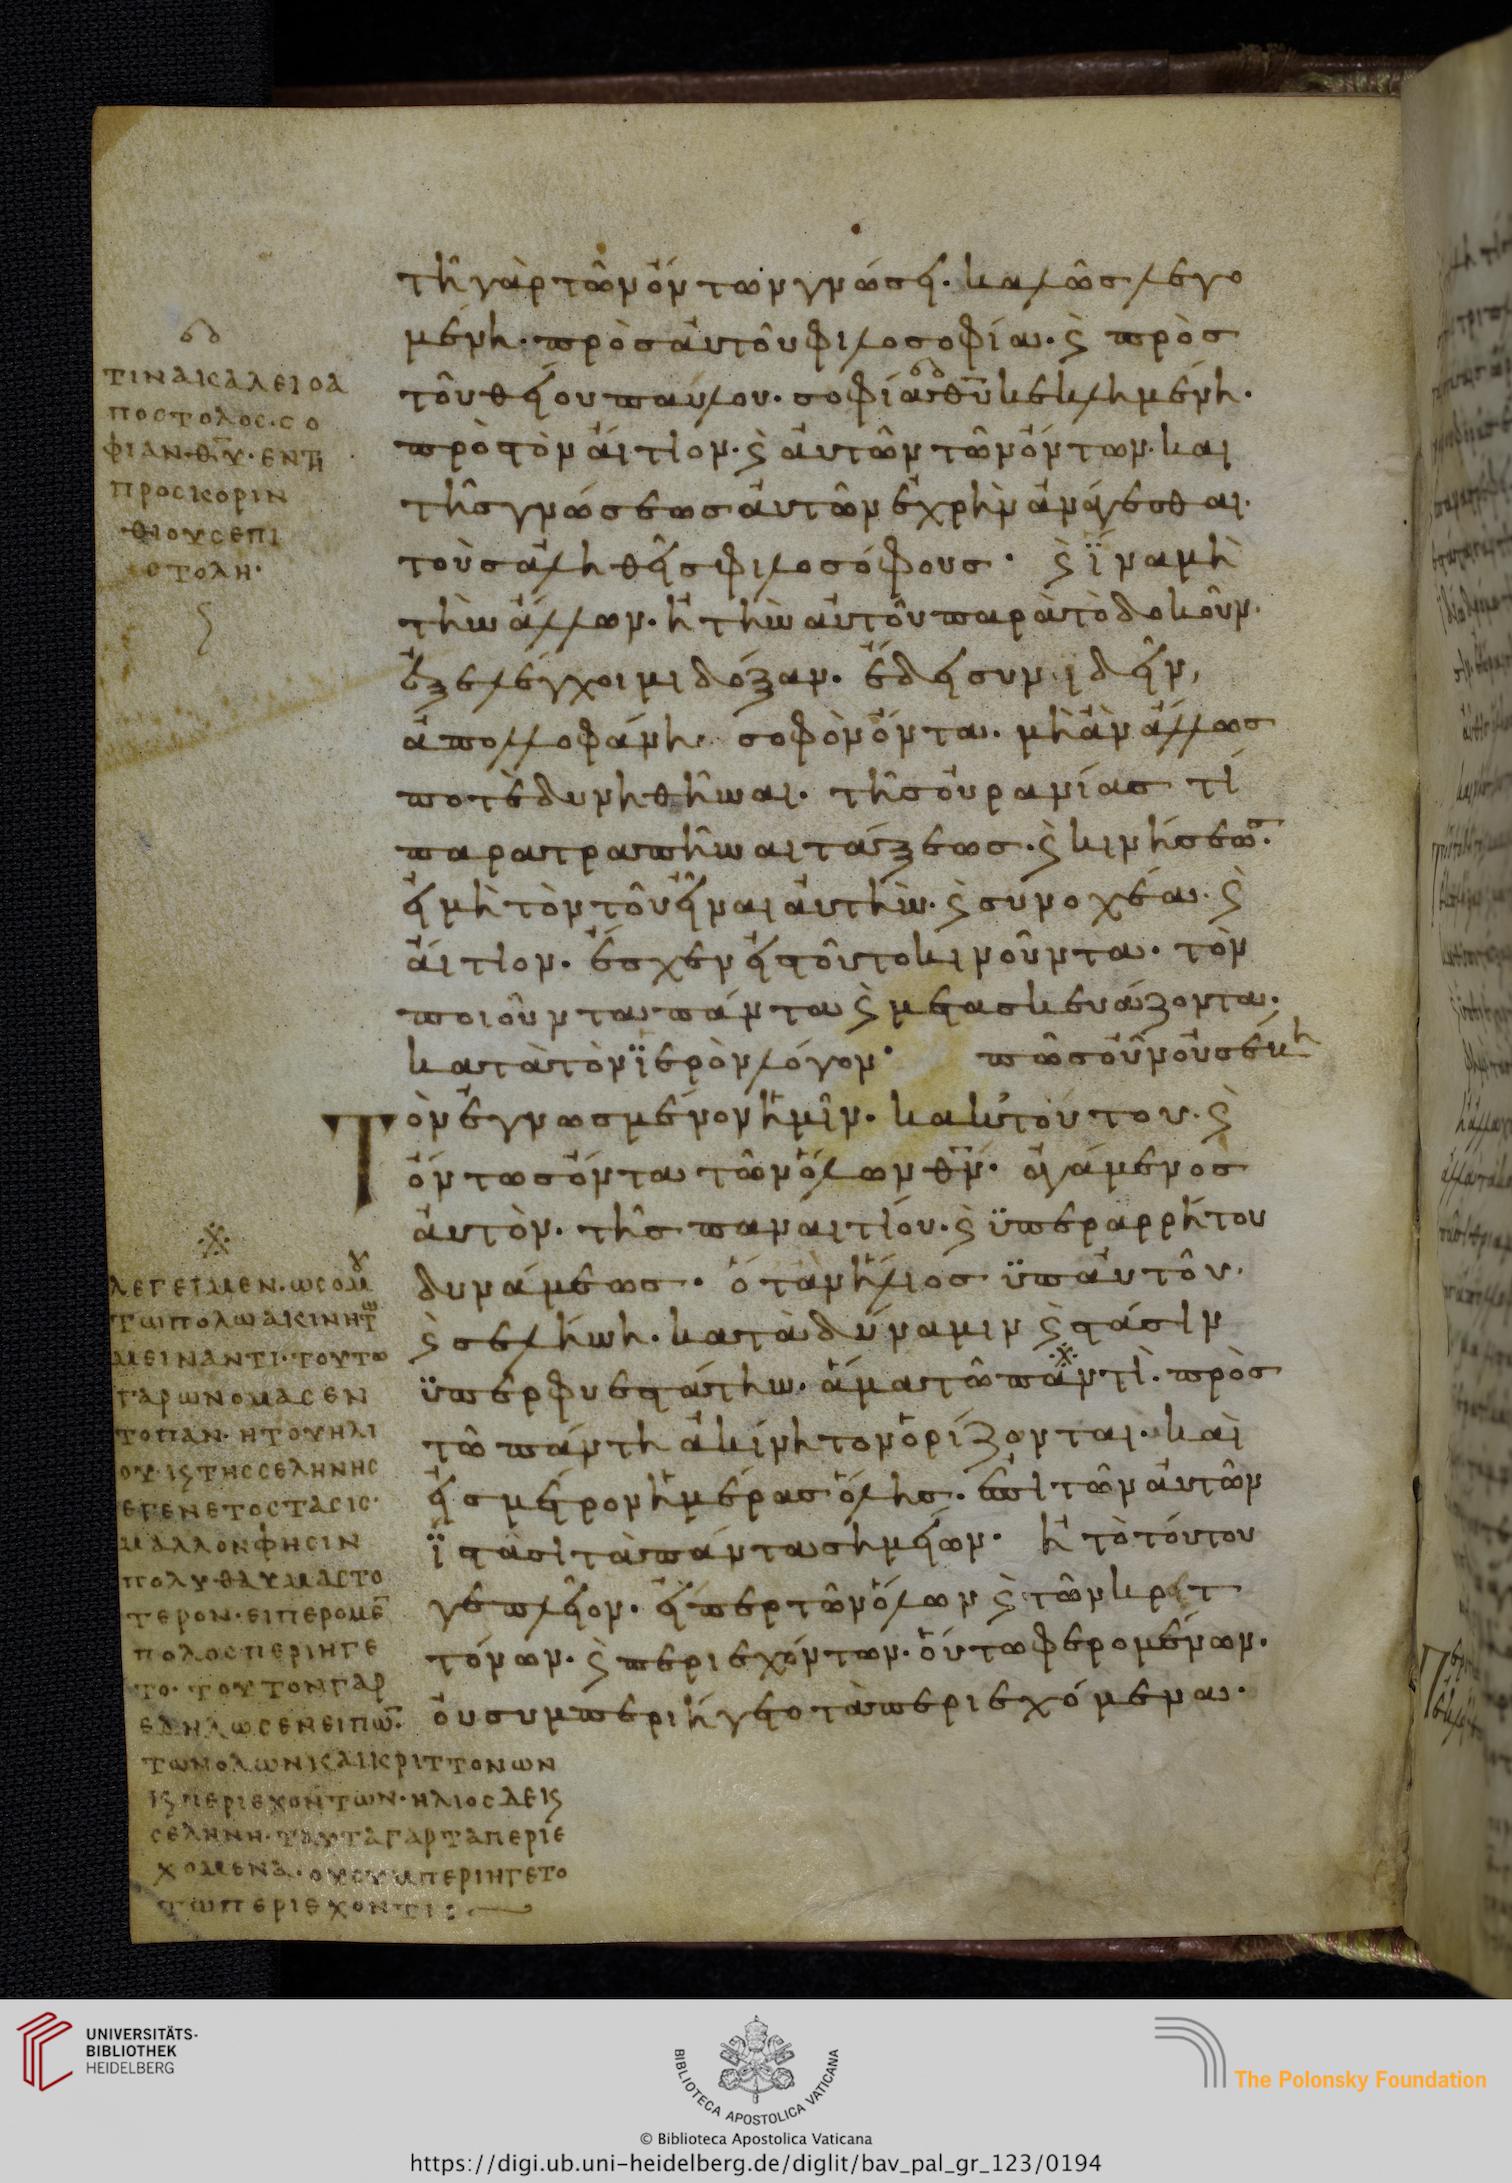 τῆ γὰρ τῶν ὄντων γνώσει. καλῶς λεγο
μένη. πρὸς αὐτοῦ φιλοσοφία. ϗ πρὸς
τοῦ θείου παύλου. σοφία θυ κεκλημένη.
πρὸς τὸν αἴτιον. ϗ αὐτῶν τῶν ὄντων. και
τῆς γνώσεως αὐτῶν ἐχρῆν ἀνάγεσθαι.
τοὺς ἀληθεῖς φιλοσόφους. ϗ ἵνα μὴ
τὴν ἄλλων. ἢ τὴν αὐτοῦ παρὰ τὸ δοκοῦν.
ἐξελέγχοιμι δόξαν. ἔδει συνιδεῖν,
ἀπολλοφάνη. σοφὸν ὄντα. μὴ ἂν ἄλλως
ποτὲ δυνηθῆναι. τῆς οὐρανίας τί
παρατραπῆναι τάξεως. ϗ κινήσεως.
εἰ μὴ τὸν τοῦ εἶναι αὐτὴν. ϗ συνοχέα. ϗ
αἴτιον. ἔσχεν εἰς τοῦτο κινοῦντα. τὸν
ποιοῦντα πάντα ϗ μετασκευάζοντα.
κατὰ τὸν ἱερὸν λόγον. πῶς οὖν οὐ σέβει
Τὸν ἐγνωσμένον ἡμῖν. κακ τούτου. ϗ
ὄντως ὄντα τῶν ὅλων θν. ἀγάμενος
αὐτὸν. τῆς παναιτίου. ϗ ὑπεραρρήτου
δυνάμεως. ὅταν ἥλιος ὑπ αὐτοῦ.
ϗ σελήνη. κατὰ δύναμιν ϗ στάσιν
ὑπερφυεστάτην. ἅμα τῶ παντὶ. πρὸς
τῶ πάντη ἀκίνητον ὁρίζονται. καὶ
εἰς μέτρον ἡμέρας ὅλης. ἐπὶ τῶν αὐτῶν
ἱστᾶσι τὰ πάντα σημείων. ἢ τὸ τούτου
γε πλεῖον. εἴπερ τῶν ὅλων ϗ τῶν κρειτ
τόνων. ϗ περιεχόντων. οὕτω φερομένων.
οὐ συμπεριήγετο τὰ περιεχόμενα.
ΤΙΝΑ ΚΑΛΕΙ Ο Α
ΠΟΣΤΟΛΟΣ· ΣΟ
ΦΙΑΝ· ΘΥ· ΕΝ ΤΗ
ΠΡΟΣ ΚΟΡΙΝ
ΘΙΟΥΣ ΕΠΙ
ΣΤΟΛΗ·
ΛΕΓΕΙ ΜΕΝ· ΩΣ ΟΜΟΥ
ΤΩ ΠΟΛΩ ΑΚΙΝΗΤΩ
ΜΕΙΝΑΝΤΙ· ΤΟΥΤΟ
ΓΑΡ ΩΝΟΜΑΣΕΝ
ΤΟ ΠΑΝ· Η ΤΟΥ ΗΛΙ
ΟΥ· Κ ΤΗΣ ΣΕΛΗΝΗΣ
ΕΓΕΝΕΤΟ ΣΤΑΣΙΣ·
ΜΑΛΛΟΝ ΦΗΣΙΝ
ΠΟΛΥ ΘΑΥΜΑΣΤΟ
ΤΕΡΟΝ· ΕΙΠΕΡ Ο ΜΕΝ
ΠΟΛΟΣ ΠΕΡΙΗΓΕ
ΤΟ· ΤΟΥΤΟΝ ΓΑΡ
ΕΔΗΛΩΣΕΝ ΕΙΠΩΝ
ΤΩΝ ΟΛΩΝ ΚΑΙ ΚΡΙΤΤΟΝΩΝ
Κ ΠΕΡΙΕΧΟΝΤΩΝ· ΗΛΙΟΣ ΔΕ Κ
ΣΕΛΗΝΗ· ΤΑΥΤΑ ΓΑΡ ΤΑ ΠΕΡΙΕ
ΧΟΜΕΝΑ· ΟΥ ΣΥΜΠΕΡΙΗΓΕΤΟ
ΤΩ ΠΕΡΙΕΧΟΝΤΙ:
UNIVERSITÄTS-
BIBLIOTHEK
HEIDELBERG
BIBLIOTECA APOSTOLICA VATICANA
The Polonsky Foundation
© Biblioteca Apostolica Vaticana
https://digi.ub.uni-heidelberg.de/diglit/bav_pal_gr_123/0194